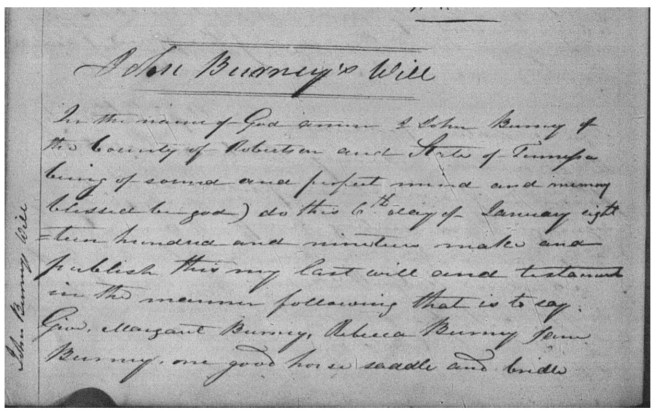 John Burney's Will
In the name of God amen I John Burney of
the County of Robertson and State of Tennessee
being of sound and perfect mind and memory
blessed be god) do this 6th day of January eight
=teen hundred and nineteen make and
publish this my last will and testament
in the manner following that is to say.
Give. Margaret Burney, Rebecca Burney Jane
Burney. one good horse saddle and bridle
John Burneys Will